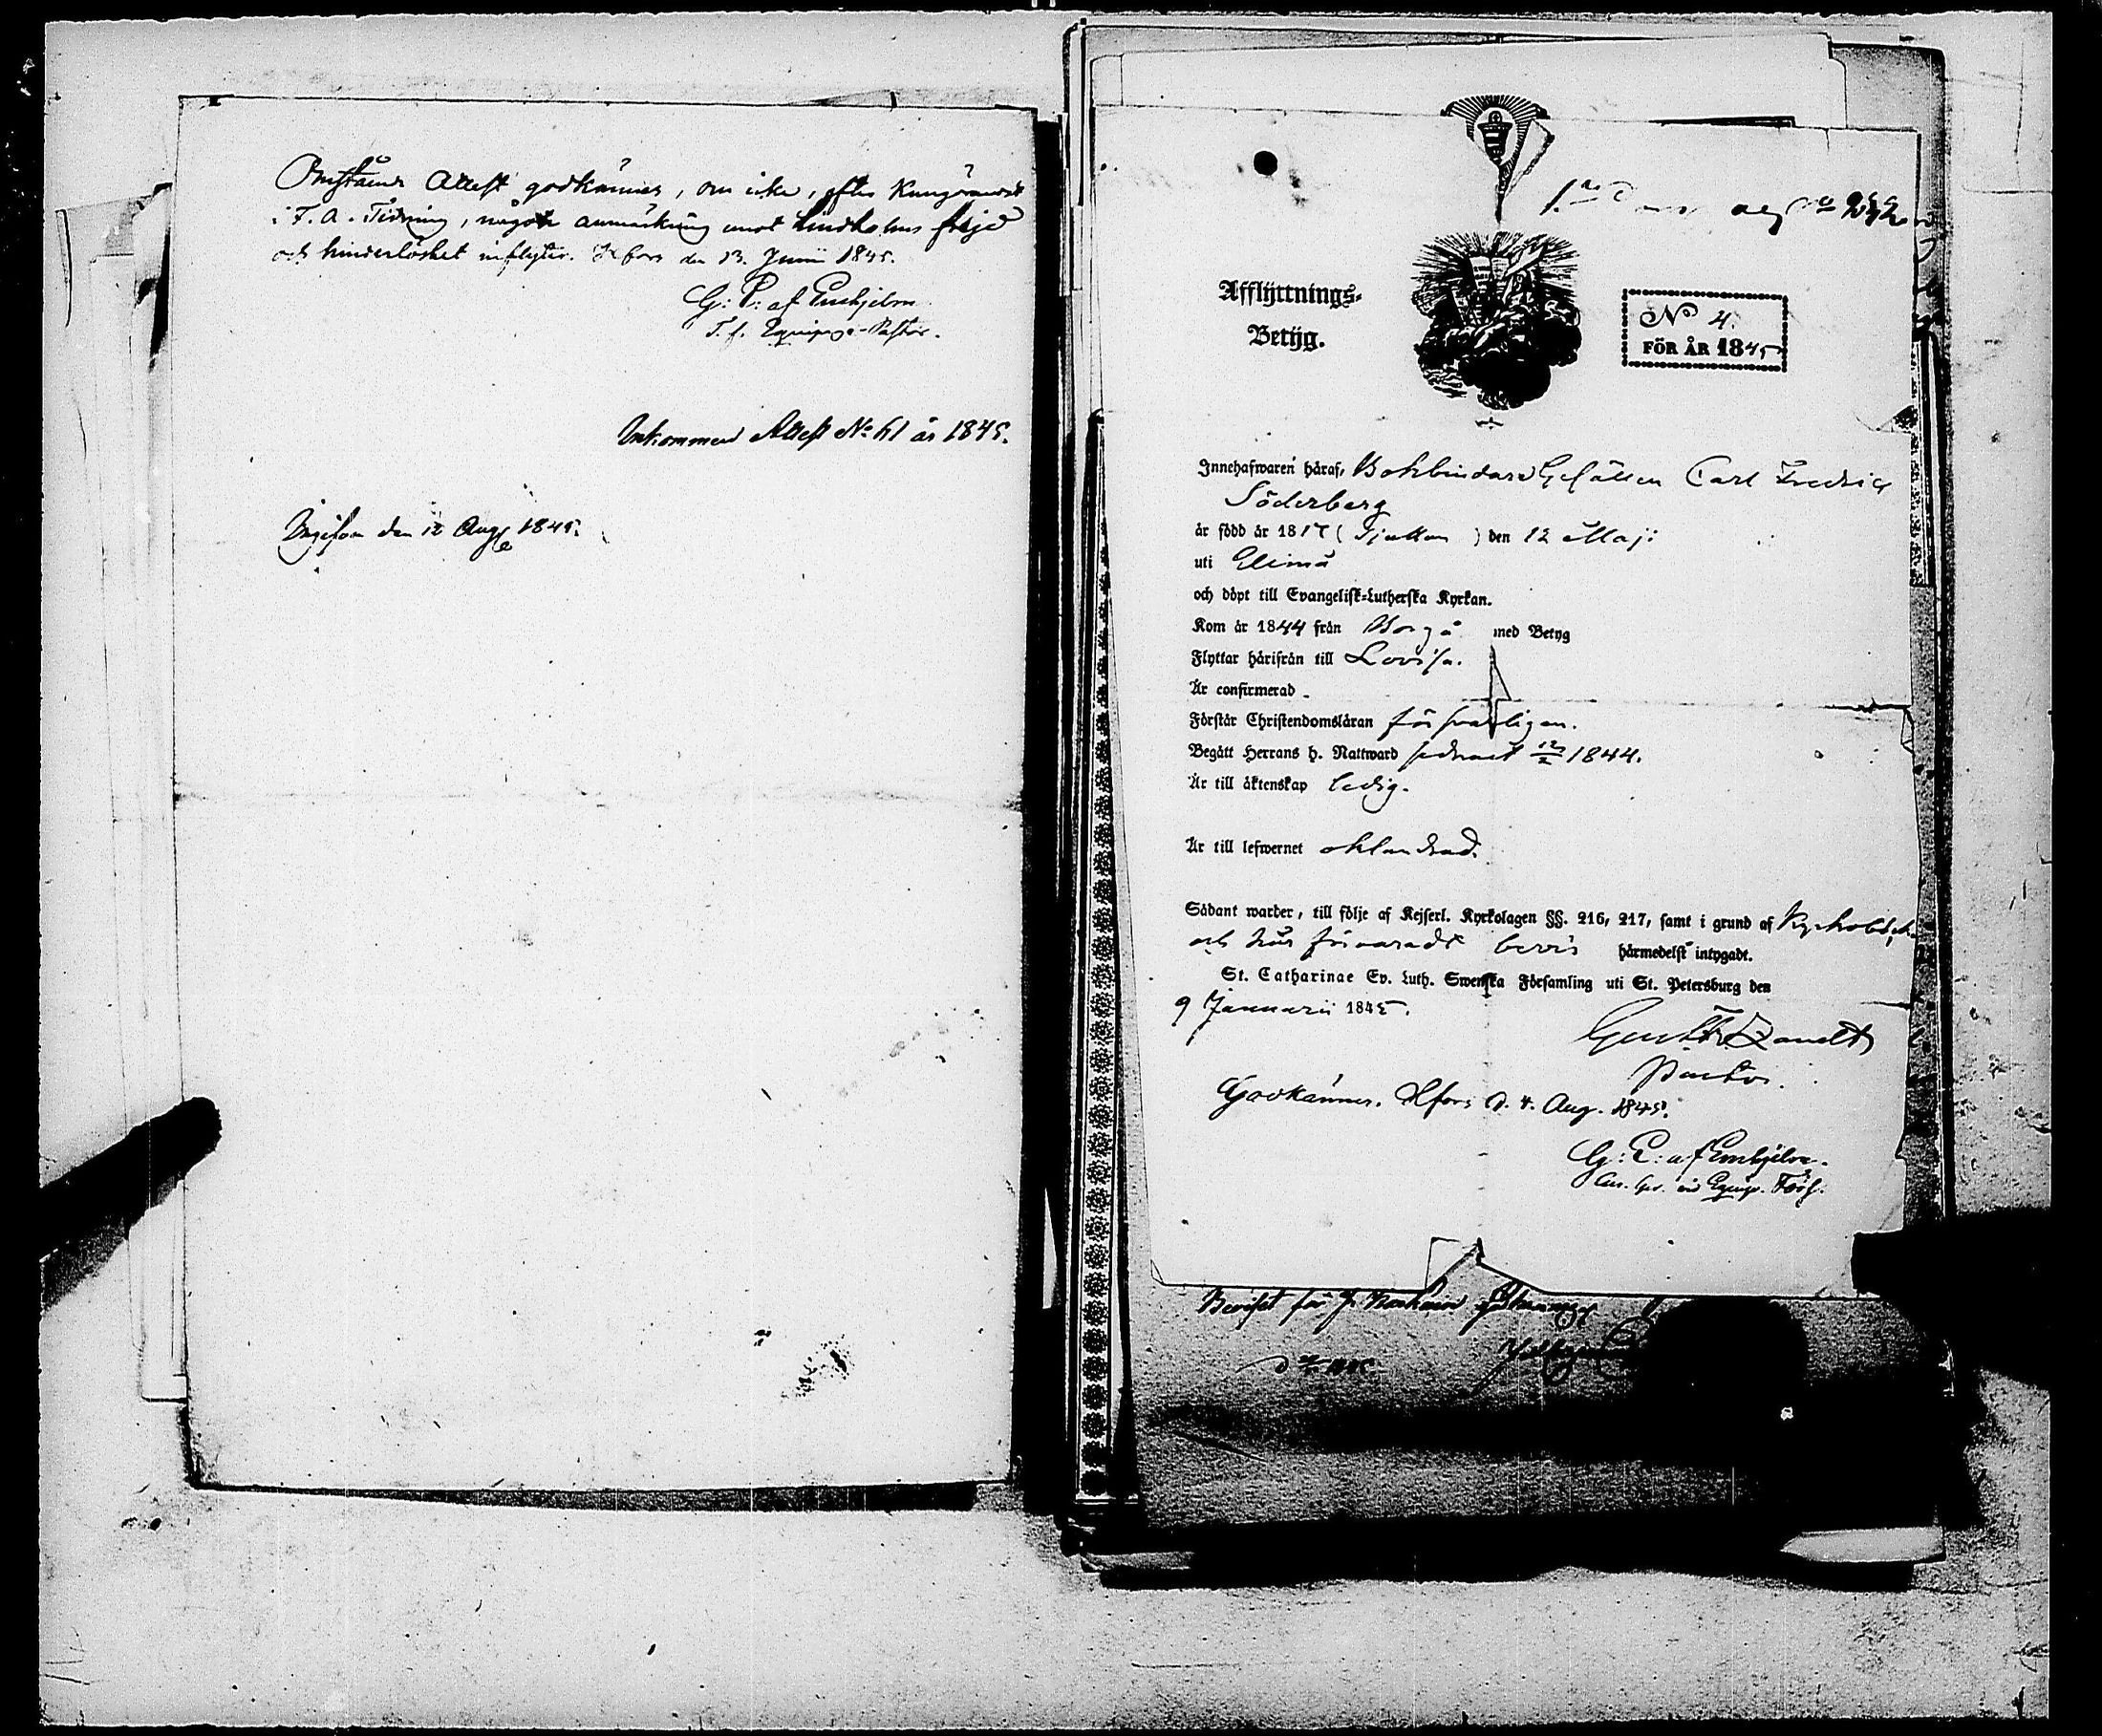 Omstående Attest godkännes, om icke, efter Kungörandet
i F. A. Tidning, någon anmärkning emot Lindholms frejd
och hinderlöshet inflyter. H:fors den 13. Junii 1845.
G: P: af Enehjelm
T. f. Equipage-Pastor.
Inkommen Attest No 61 år 1845.
den 12 Aug 1845.
Afflÿttnings-
Betÿg.
No 4.
FÖR ÅR 1845
Innehafwaren häraf, Bokbindare Gesällen Carl Fredric
Söderberg
är född år 1817 (Sjutton) den 12 Maji
uti Elimä
och döpt till Evangelisk-Lutherska Kyrkan.
Kom år 1844 från Borgå med Betyg
Flyttar härifrån till Lovisa.
Är confirmerad
Förstår Christendomsläran försvarligen.
Begått Herrans h. Nattward sednast 12/2 1844.
Är till äktenskap ledig.
Är till lefwernet oklandrad.
Sådant warder, till följe af Kejserl. Kyrkolagen §§. 216, 217, samt i grund af Kyrkobok
och här förvaradt bevis härmedelst intygadt.
St. Catharinae Ev. Luth. Swenska Församling uti St. Petersburg den
9 Januarii 1845.
Pastor.
Godkännes. H:fors d. 4. Aug. 1845.
G: P: af Enehjelm.
Equip. Förs.
Beviset för